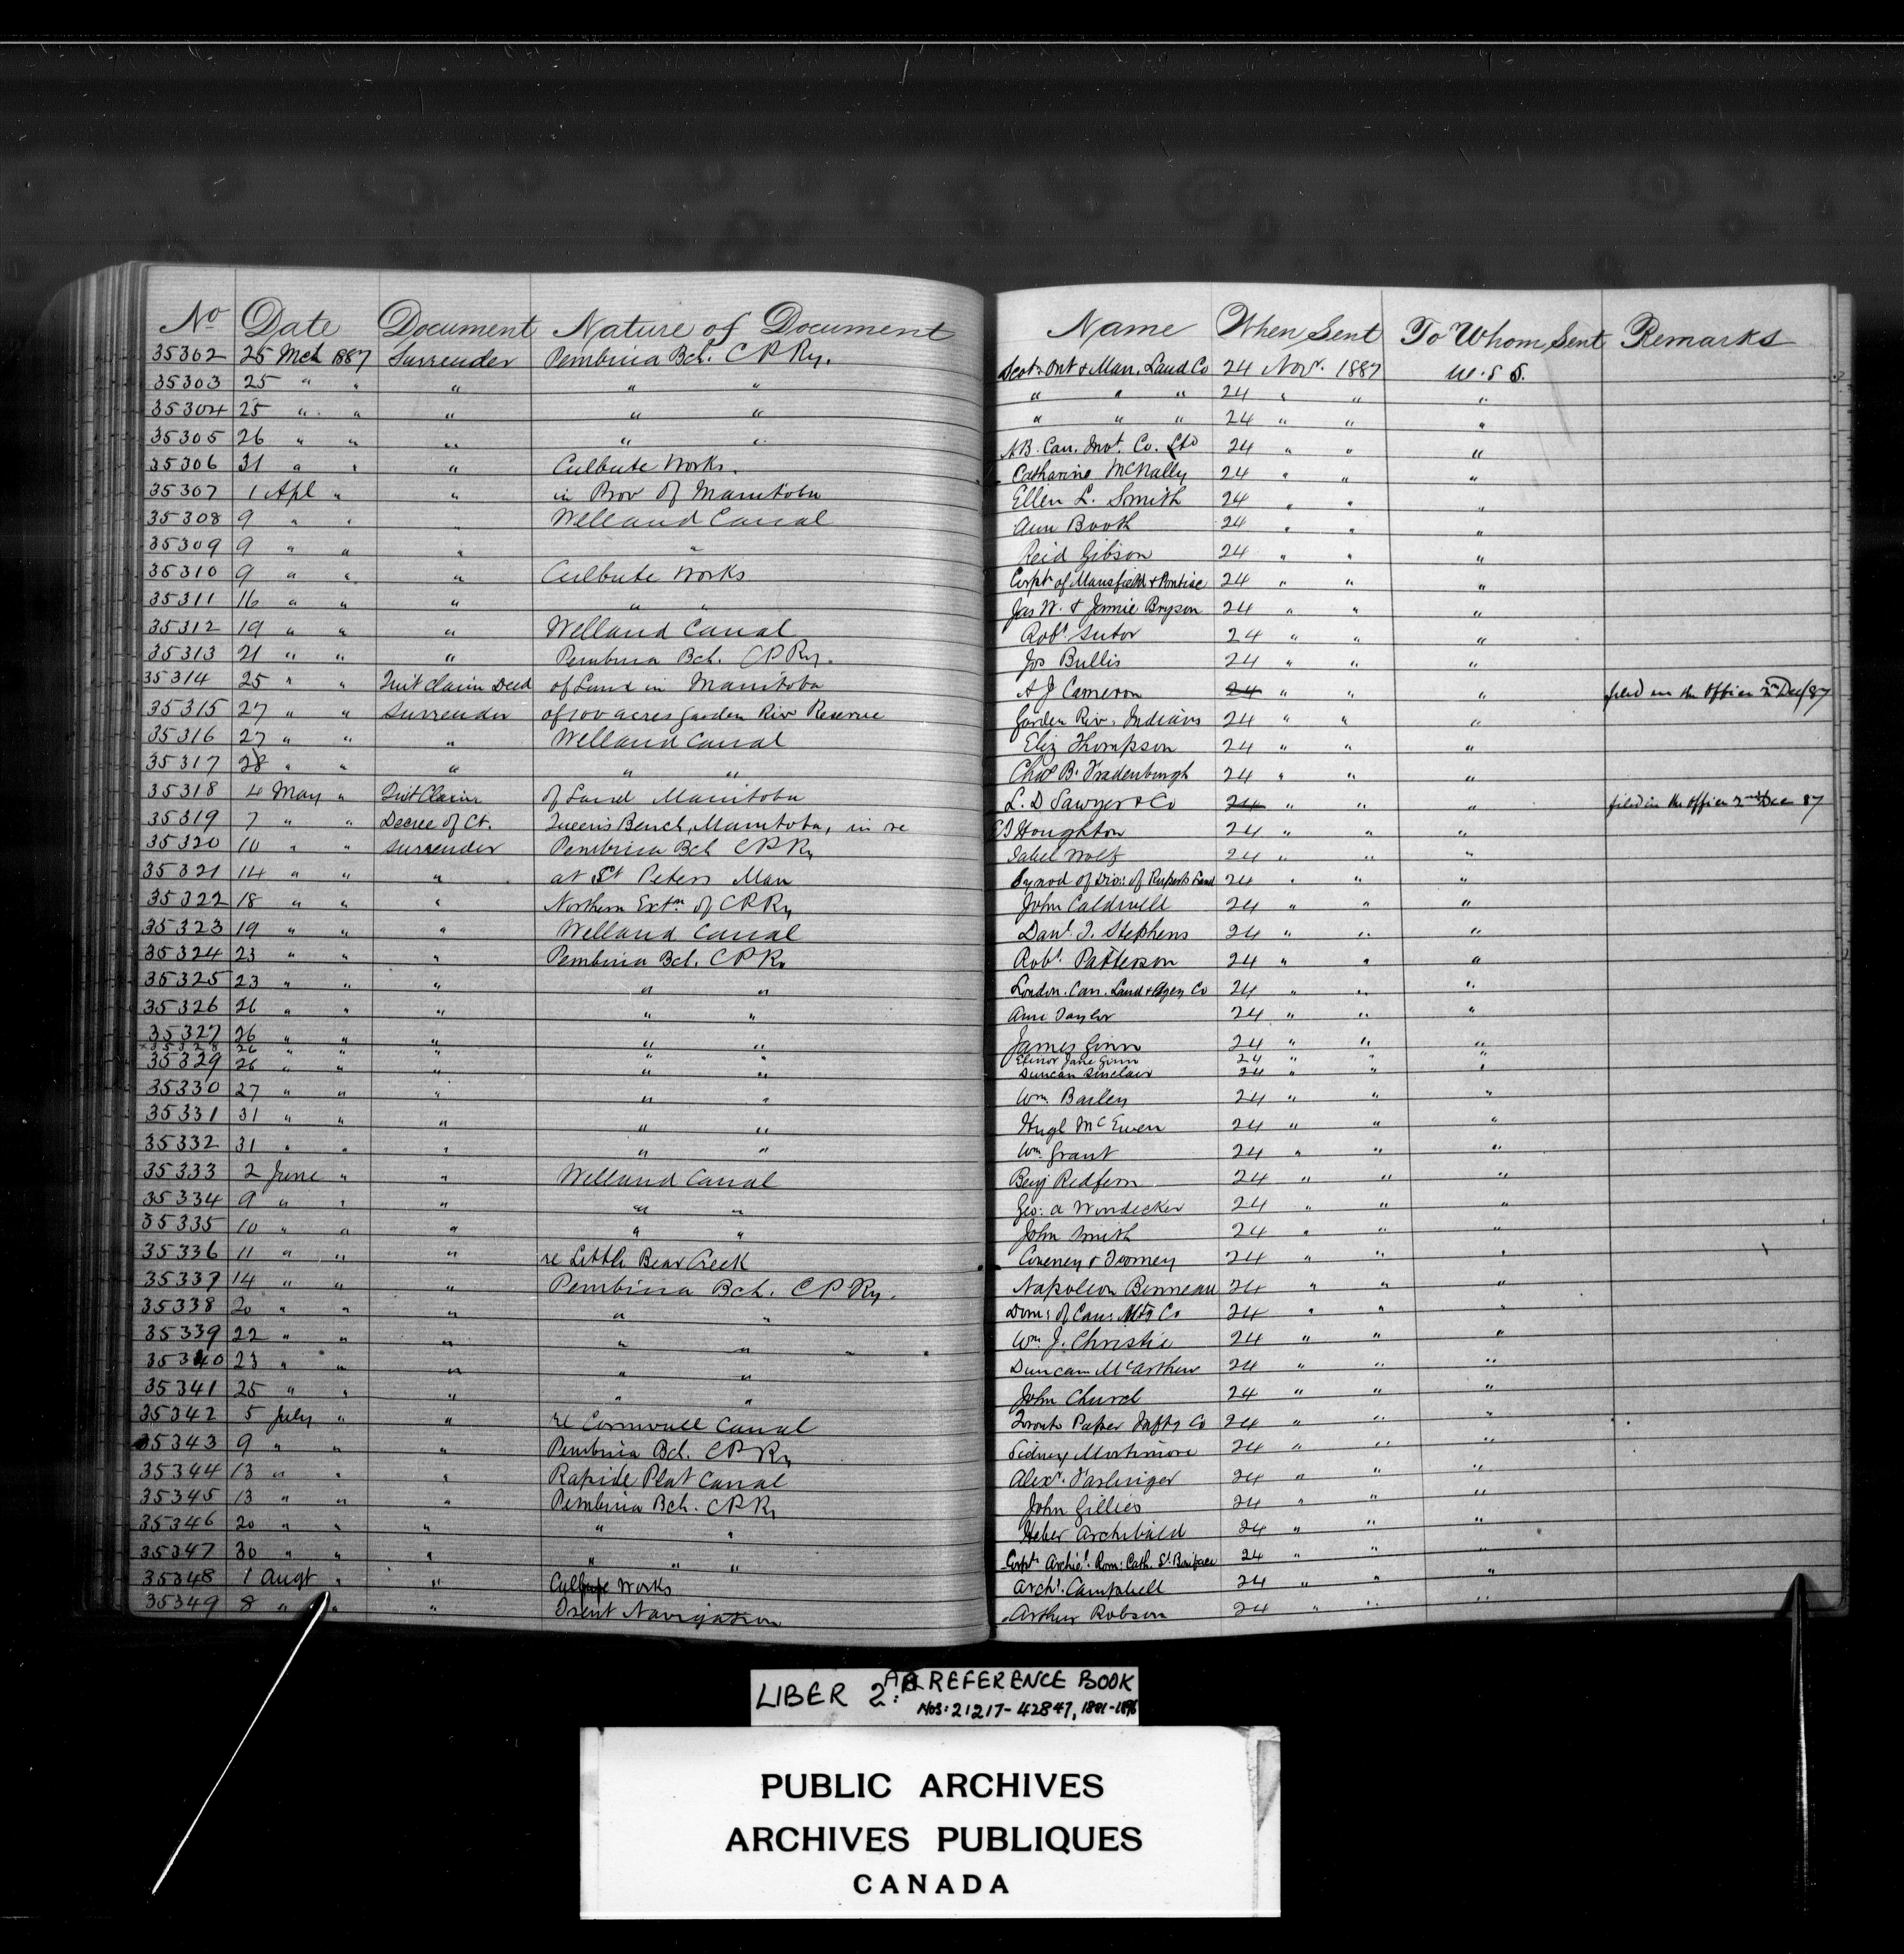 No Date Document Nature of Document Name When Sent To Whom Sent Remarks
35302 25 Mch 1887 Surrender Pembina Bch. C P Ry. Scot. Ont & Man. Land Co 24 Nov. 1887 U.S.S.
35303 25 " " " " " " " " 24 " " "
35304 25 " " " " " " " " 24 " " "
35305 26 " " " " " NB. Can. Invt. Co. Ltd 24 " " "
35306 31 " " " Culbute Works. Catharine McNally 24 " " "
35307 1 Apl " " in Prov of Manitoba Ellen L. Smith 24 " " "
35308 9 " " " Welland Canal Ann Booth 24 " " "
35309 9 " " " " Reid Gibson 24 " " "
35310 9 " " " Culbute Works Corpt of Mansfield & Pontiac 24 " " "
35311 16 " " " " " Jas W. & Jennie Bryson 24 " " "
35312 19 " " " Welland Canal Robt. Sutor 24 " " "
35313 21 " " " Pembina Bch. C P Ry. Jos Bullis 24 " " "
35314 25 " " Quit Claim Deed of Land in Manitoba A J Cameron 24 " " " filed in the Office 2nd Dec/87
35315 27 " " Surrender of 100 acres Garden Riv Reserve Garden Riv. Indians 24 " " "
35316 27 " " " Welland Canal Eliz Thompson 24 " " "
35317 28 " " " " " Chas B. Vradenburgh 24 " " "
35318 4 May " Quit Claim of Land Manitoba L. D Sawyer & Co 24 " " " filed in the Office 2nd Dec 87
35319 7 " " Decree of Ct. Queen's Bench, Manitoba, in re Houghton 24 " " "
35320 10 " " Surrender Pembina Bch C P Ry Isabel Wolf 24 " " "
35321 14 " " " at St Peters Man Synod of Dio: of Ruperts Land 24 " " "
35322 18 " " " Northern Extn of C P Ry John Caldwell 24 " " "
35323 19 " " " Welland Canal Danl. J. Stephens 24 " " "
35324 23 " " " Pembina Bch. C P R. Robt. Patterson 24 " " "
35325 23 " " " " " London. Can. Land & Agcy Co 24 " " "
35326 26 " " " " " Ann Taylor 24 " " "
35327 26 " " " " " James Gunn 24 " " "
x35328 26 " " " " Elinor Jane Gunn 24 " " "
35329 26 " " " " " Duncan Sinclair 24 " " "
35330 27 " " " " " Wm. Bailey 24 " " "
35331 31 " " " " " Hugh McEwen 24 " " "
35332 31 " " " " " Wm. Grant 24 " " "
35333 2 June " " Welland Canal Benj Redfern 24 " " "
35334 9 " " " " " Geo: A Windecker 24 " " "
35335 10 " " " " " John Smith 24 " " "
35336 11 " " " re Little Bear Creek Coveney & Toomey 24 " " "
35337 14 " " " Pembina Bch. C P Ry. Napoleon Bonneau 24 " " "
35338 20 " " " " " Dom: of Can: Mtg Co 24 " " "
35339 22 " " " " " " Wm. J. Christie 24 " " "
35340 23 " " " " " Duncan McArthur 24 " " "
35341 25 " " " " " John Church 24 " " "
35342 5 July " " re Cornwall Canal Toronto Paper Mfg Co 24 " " "
35343 9 " " " Pembina Bch. C P Ry Sidney Mortimore 24 " " "
35344 13 " " " Rapide Plat Canal Alexr. Farlinger 24 " " "
35345 13 " " " Pembina Bch. C P R John Gillies 24 " " "
35346 20 " " " " " Heber Archibald 24 " " "
35347 30 " " " " " " Corpn Archiel. Rom: Cath. St. Boniface 24 " " "
35348 1 Augt " " Culbute Works Archd. Campbell 24 " " "
35349 8 " " " Trent Navigation Arthur Robson 24 " " "
LIBER 2: REFERENCE BOOK
NOS: 21217-42847, 1881-1896
PUBLIC ARCHIVES
ARCHIVES PUBLIQUES
CANADA